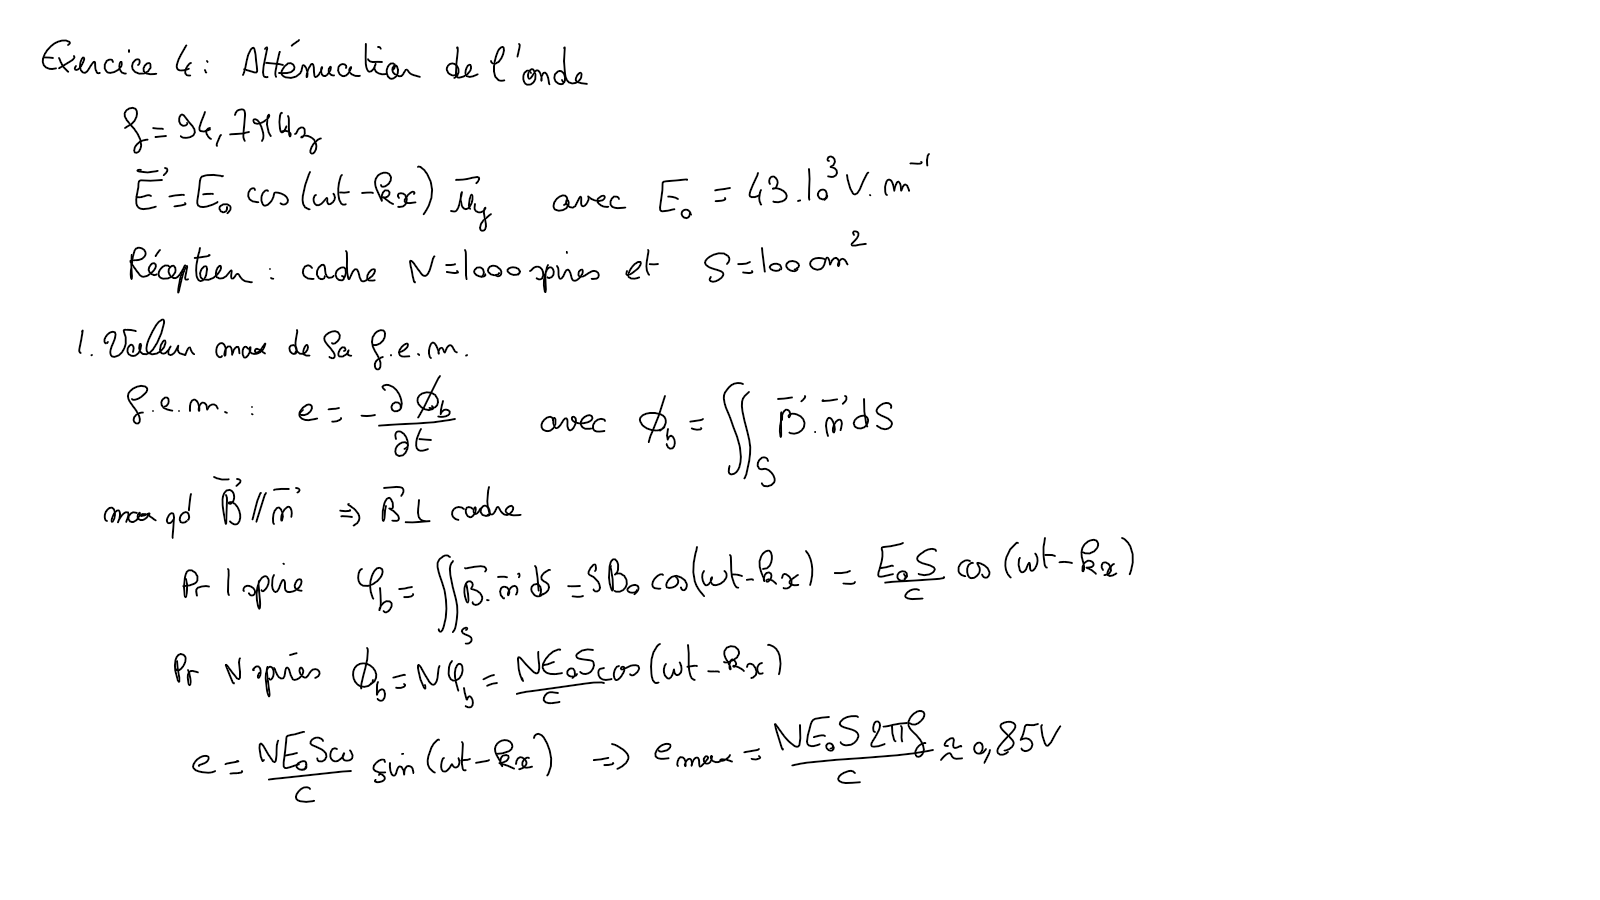 Exercice 4 : Atténuation de l'onde
f = 94,7 MHz
E⃗ = E₀ cos(ωt - kx) u⃗y avec E₀ = 43.10³ V.m⁻¹
Récepteur : cadre N = 1000 spires et S = 100 cm²
1. Valeur max de la f.e.m.
f.e.m. : e = - ∂ϕb/∂t avec ϕb = ∬S B⃗.n⃗ dS
max qd B⃗ // n⃗ ⇒ B⃗ ⊥ cadre
Pr 1 spire φb = ∬S B⃗.n⃗ dS = SB₀ cos(ωt - kx) = E₀S/c cos(ωt - kx)
Pr N spires ϕb = Nφb = NE₀S/c cos(ωt - kx)
e = NE₀Sω/c sin(ωt - kx) ⇒ emax = NE₀S2πf/c ≈ 0,85V